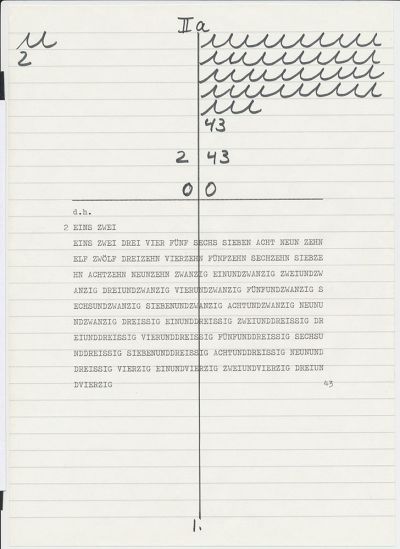 IIa
2
43
2 43
0 0
d.h.
2 EINS ZWEI
EINS ZWEI DREI VIER FÜNF SECHS SIEBEN ACHT NEUN ZEHN
ELF ZWÖLF DREIZEHN VIERZEHN FÜNFZEHN SECHZEHN SIEBZE
HN ACHTZEHN NEUNZEHN ZWANZIG EINUNDZWANZIG ZWEIUNDZW
ANZIG DREIUNDZWANZIG VIERUNDZWANZIG FÜNFUNDZWANZIG S
ECHSUNDZWANZIG SIEBENUNDZWANZIG ACHTUNDZWANZIG NEUNU
NDZWANZIG DREISSIG EINUNDDREISSIG ZWEIUNDDREISSIG DR
EIUNDDREISSIG VIERUNDDREISSIG FÜNFUNDDREISSIG SECHSU
NDDREISSIG SIEBENUNDDREISSIG ACHTUNDDREISSIG NEUNUND
DREISSIG VIERZIG EINUNDVIERZIG ZWEIUNDVIERZIG DREIUN
DVIERZIG 43
1.